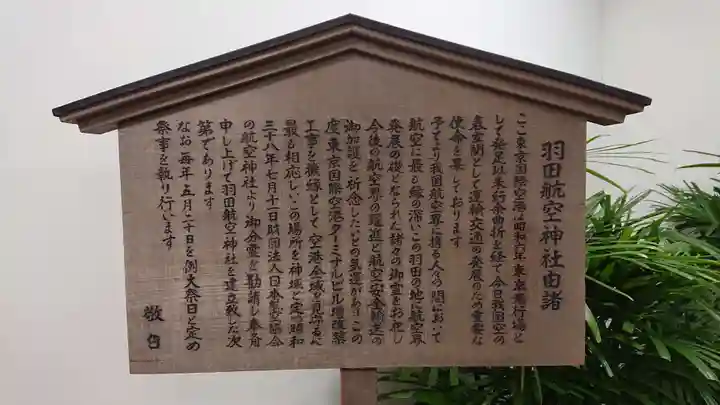 羽田航空神社由諸
ここ東京国際空港は昭和六年東京飛行場と
して発足以来紆余曲折を経て今日我国空の
表玄関として運輸交通の発展のため重要な
使命を果しております
予てより我国航空界に携る人々の間において
航空に最も縁の深いこの羽田の地に航空界
発展の礎となられた諸々の御霊をお祀し
今後の航空界の躍進と航空安全輸送の
御加護を祈念したいとの気運があり この
度東京国際空港ターミナルビル増改築
工事を機縁として空港全域を見渡るに
最も相応しいこの場所を神域と定め昭和
三十八年七月十一日財団法人日本航空協会
の航空神社より御分霊を勧請し奉斎
申し上げて羽田航空神社を建立致した次
第であります
なお毎年五月二十日を例大祭日と定め
祭事を執り行います
敬白